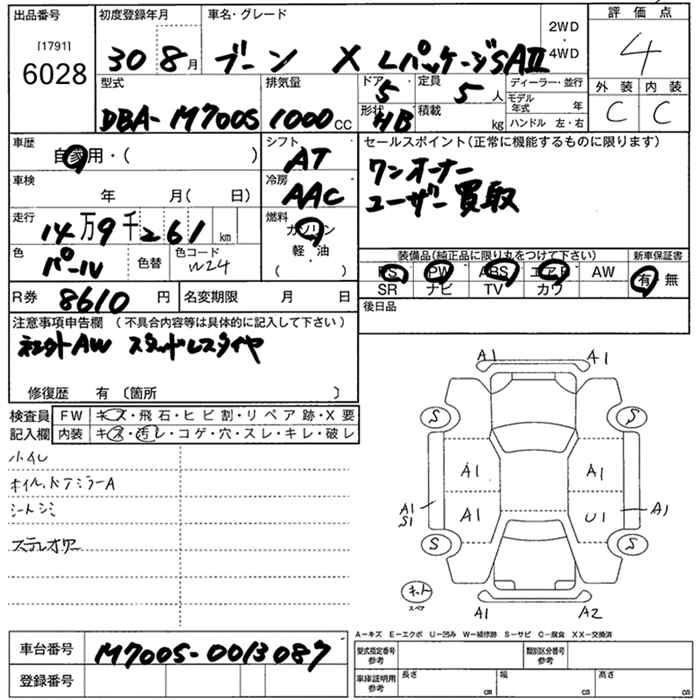 出品番号
[1791]
6028
初度登録年月
30 8月
車名・グレード
ブーン X LパッケージSAⅢ
2WD
・
4WD
評価点
4
外装 内装
C C
型式
DBA-M700S
排気量
1000cc
ドア
5
形状
HB
定員
5人
積載
kg
ディーラー・並行
モデル年式 年
ハンドル 左・右
車歴
自家用・( )
シフト
AT
セールスポイント(正常に機能するものに限ります)
ワンオーナー
ユーザー買取
車検
年 月( 日)
冷房
AAC
走行
14万9千261km
燃料
ガソリン
・
軽・油
( )
色
パール
色替
色コード
W24
装備品(純正品に限り丸をつけて下さい)
PS PW ABS エアB AW
SR ナビ TV カワ
新車保証書
有・無
R券 8610円
名変期限 月 日
後日品
注意事項申告欄 (不具合内容等は具体的に記入して下さい)
社外AW スタッドレスタイヤ
修復歴 有〔箇所 〕
検査員記入欄
FW キズ・飛石・ヒビ割・リペア跡・X要
内装 キズ・汚レ・コゲ・穴・スレ・キレ・破レ
小キレ
シートシミ
A1 A1
S S
A1 A1
A1 S1 A1 U1 A1
S S
キット
スペア
A1 A2
A-キズ E-エクボ U-凹み W-補修跡 S-サビ C-腐食 XX-交換済
車台番号 M700S-0013087
登録番号
型式指定番号 参考
類別区分番号 参考
車庫証明用 参考
長さ cm 幅 cm 高さ cm